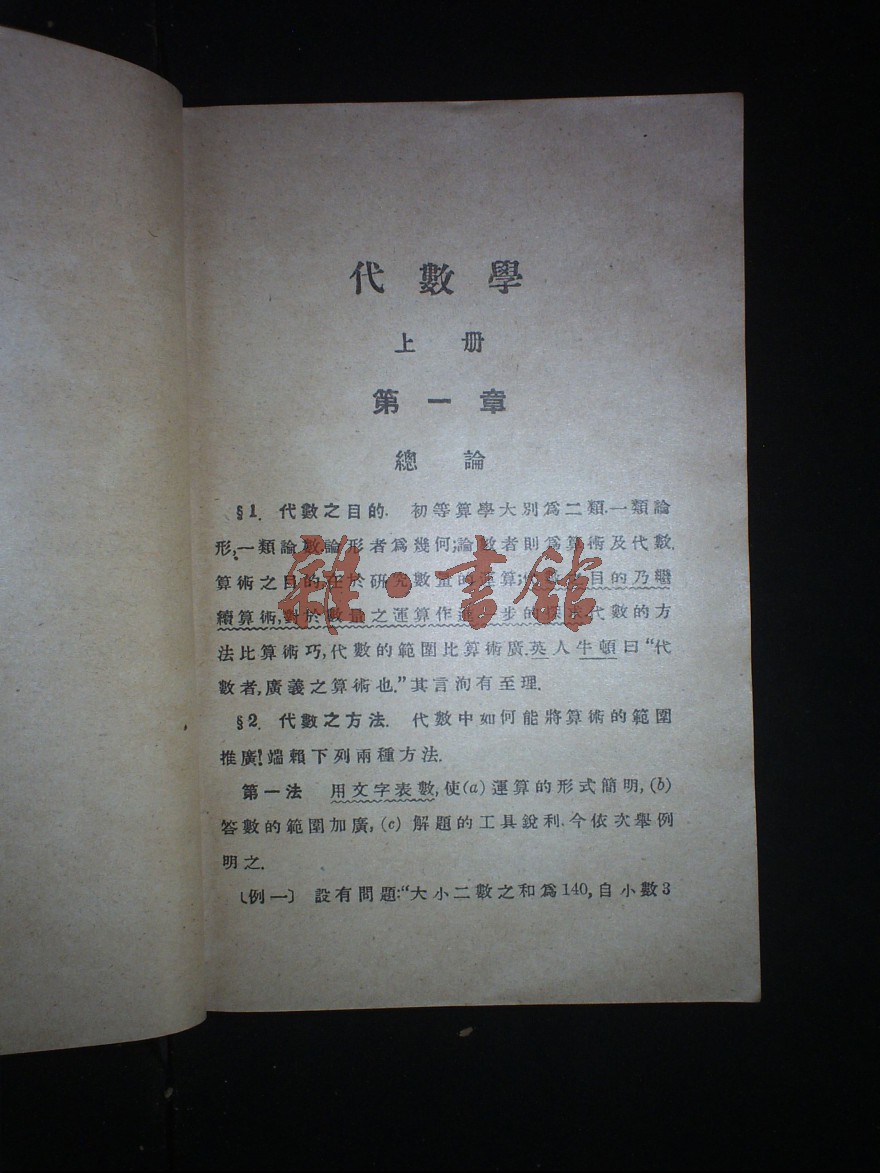 代數學
上冊
第一章
總論
§1. 代數之目的. 初等算學大別爲二類.一類論
形,一類論數.論形者爲幾何;論數者則爲算術及代數.
算術之目的,在於研究數量的運算;代數之目的乃繼
續算術,對於數量之運算作進一步的探求.代數的方
法比算術巧,代數的範圍比算術廣.英人牛頓曰“代
數者,廣義之算術也.”其言洵有至理.
§2. 代數之方法. 代數中如何能將算術的範圍
推廣!端賴下列兩種方法.
第一法 用文字表數,使(a)運算的形式簡明,(b)
答數的範圍加廣,(c)解題的工具銳利.今依次舉例
明之.
〔例一〕 設有問題:“大小二數之和爲140,自小數3
雜·書館